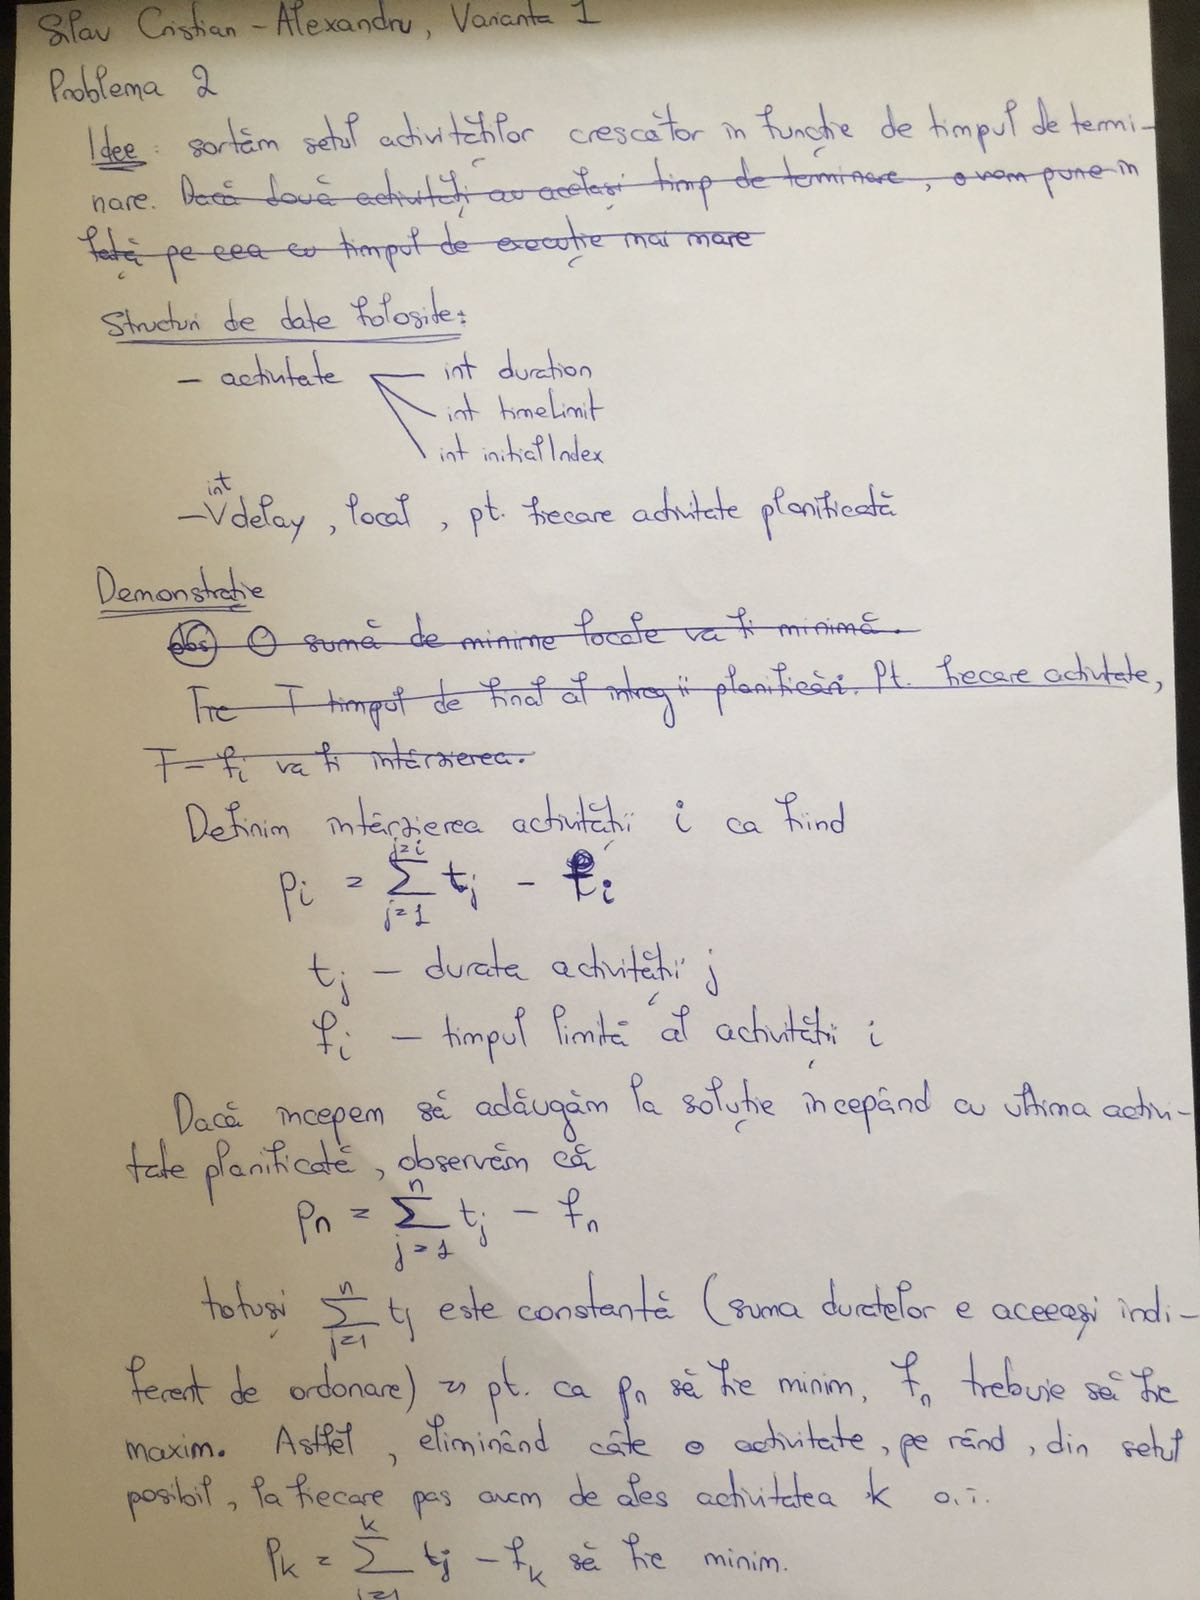 Silav Cristian-Alexandru, Varianta 1
Problema 2
Idee: sortăm setul activităților crescător în funcție de timpul de termi-
nare. Dacă două activități au același timp de terminare, o vom pune în
față pe cea cu timpul de execuție mai mare
Structuri de date folosite:
- activitate int duration
int timeLimit
int initialIndex
int
- V delay, local, pt. fiecare activitate planificată
Demonstrație
obs O sumă de minime locale va fi minimă.
Fie T timpul de final al întregii planificări. Pt. fiecare activitate,
T - fi va fi întârzierea.
Definim întârzierea activității i ca fiind
pi = Σ_{j=1}^{j=i} tj - fi
tj - durata activității j
fi - timpul limită al activității i
Dacă începem să adăugăm la soluție începând cu ultima activi-
tate planificată, observăm că
pn = Σ_{j=1}^{n} tj - fn
totuși Σ_{j=1}^{n} tj este constantă (suma duratelor e aceeași indi-
ferent de ordonare) => pt. ca pn să fie minim, fn trebuie să fie
maxim. Astfel, eliminând câte o activitate, pe rând, din setul
posibil, la fiecare pas avem de ales activitatea k a.î.
pk = Σ_{j=1}^{k} tj - fk să fie minim.